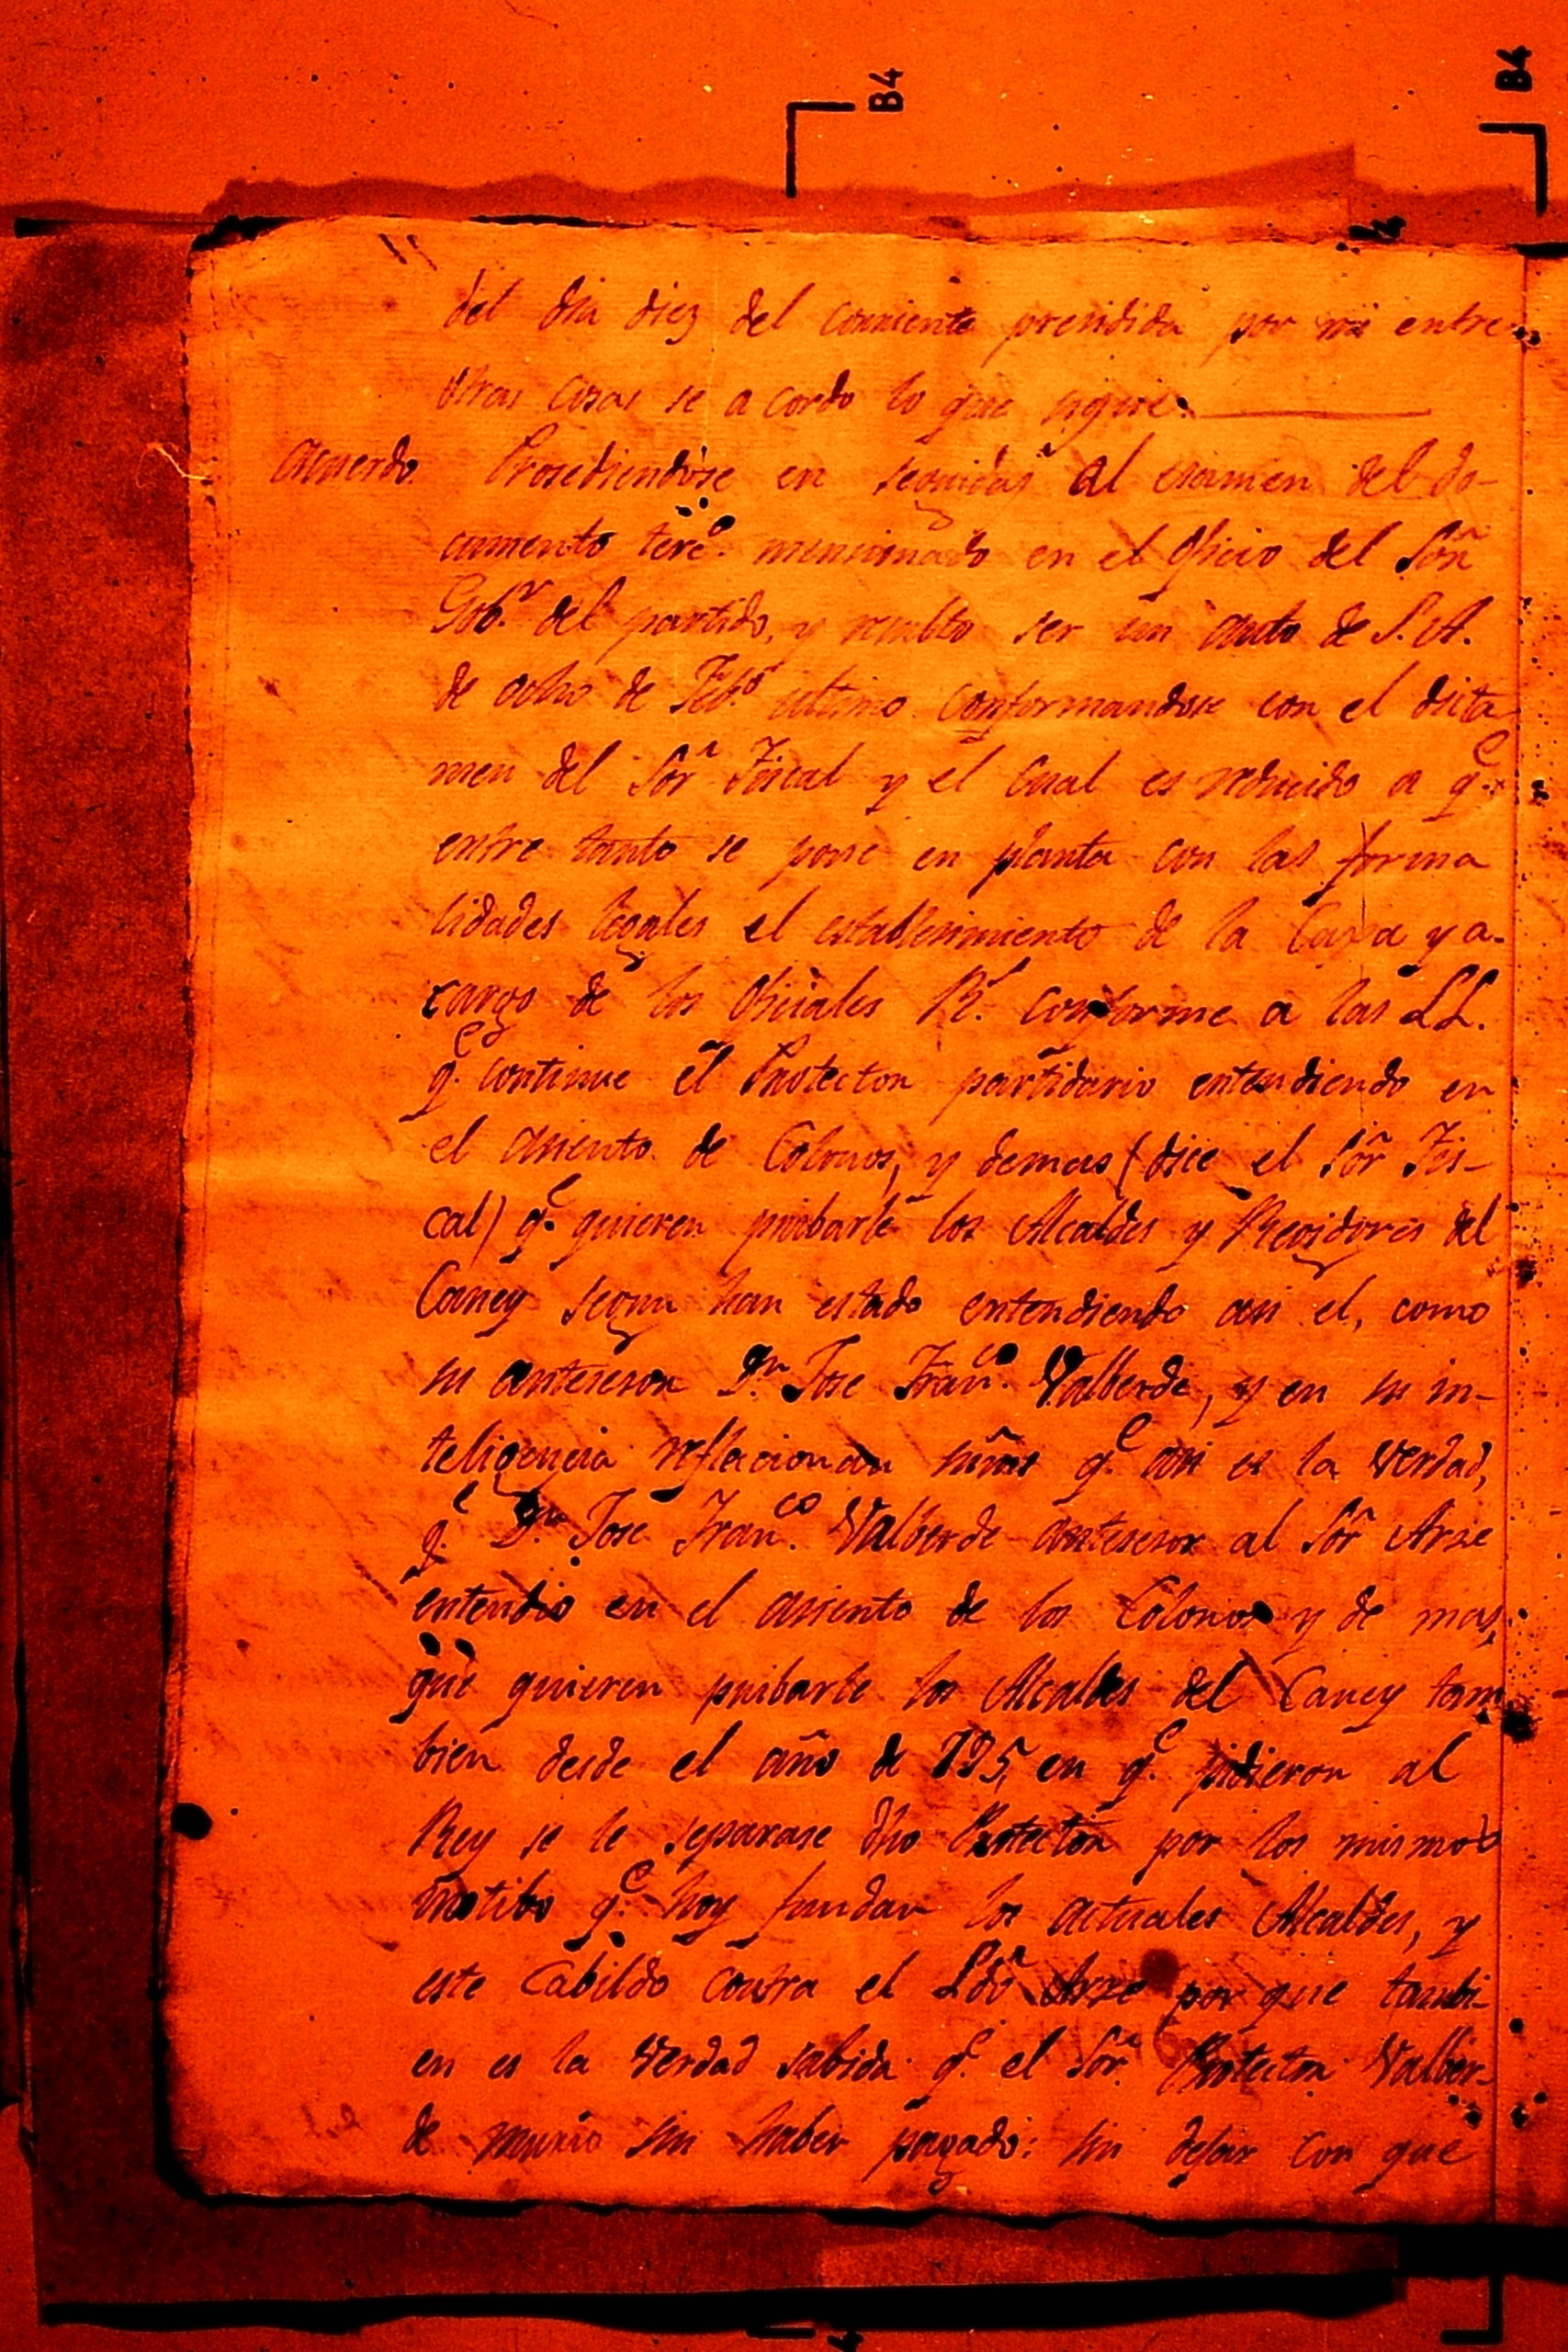 B4
B4
del dia diez del corriente precidida por mi entre
otras cosas se a cordo lo que sigue.
Acuerdo. Prosediendose en seguidas al examen del do-
cumento terc.o mencionado en el oficio del Sõr
Gob.r del partido, y resulto ser un auto de S. A.
de ocho de Feb.o ultimo conformandose con el dicta
men del Sor Fiscal y el cual es reducido a q.e
entre tanto se pone en planta con las forma
lidades legales el establesimiento de la Caxa y a-
cargo de los oficiales R.s conforme a las LL.
q.e continue el Protector partidario entendiendo en
el asiento de Colonos, y demas (dice el Sõr Fis-
cal) q.e quieren pribarle los Alcaldes y Regidores del
Caney segun han estado entendiendo asi el, como
su antesesor D.n Jose Fran.co Valberde, y en su in-
teligencia reflacionan sus q.e asi es la verdad,
q.e D.n Jose Fran.co Valberde antesesor al Sõr Arze
entendio en el asiento de los Colonos y de mas,
que quieren pribarle los Alcaldes del Caney tam
bien desde el año de 795, en q.e pidieron al
Rey se le separase dho Protector por los mismos
motibo q.e hoy fundan los actuales Alcaldes, y
este Cabildo contra el Ldõ Arze por que tambi-
en es la verdad sabida q.e el Sor Protector Valber-
de murio sin haber pagado: sin dejar con que